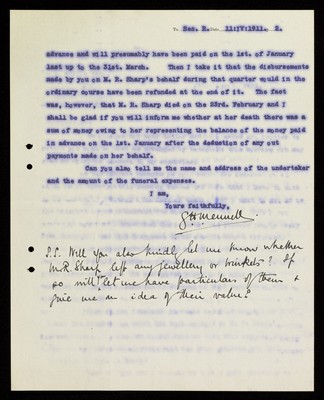 To Sec. R. Date 11:IV:1911. 2.
advance and will presumably have been paid on the 1st. of January
last up to the 31st. March. Then I take it that the disbursements
made by you on M. R. Sharp's behalf during that quarter would in the
ordinary course have been refunded at the end of it. The fact
was, however, that M. R. Sharp died on the 23rd. February and I
shall be glad if you will inform me whether at her death there was a
sum of money owing to her representing the balance of the money paid
in advance on the 1st. January after the deduction of any out
payments made on her behalf.
Can you also tell me the name and address of the undertaker
and the amount of the funeral expenses.
I am,
Yours faithfully,
G H Mennell.
P.S. Will you also kindly let me know whether
M.R. Sharp left any jewellery or trinkets? If
so will let me have particulars of them &
give me an idea of their value?